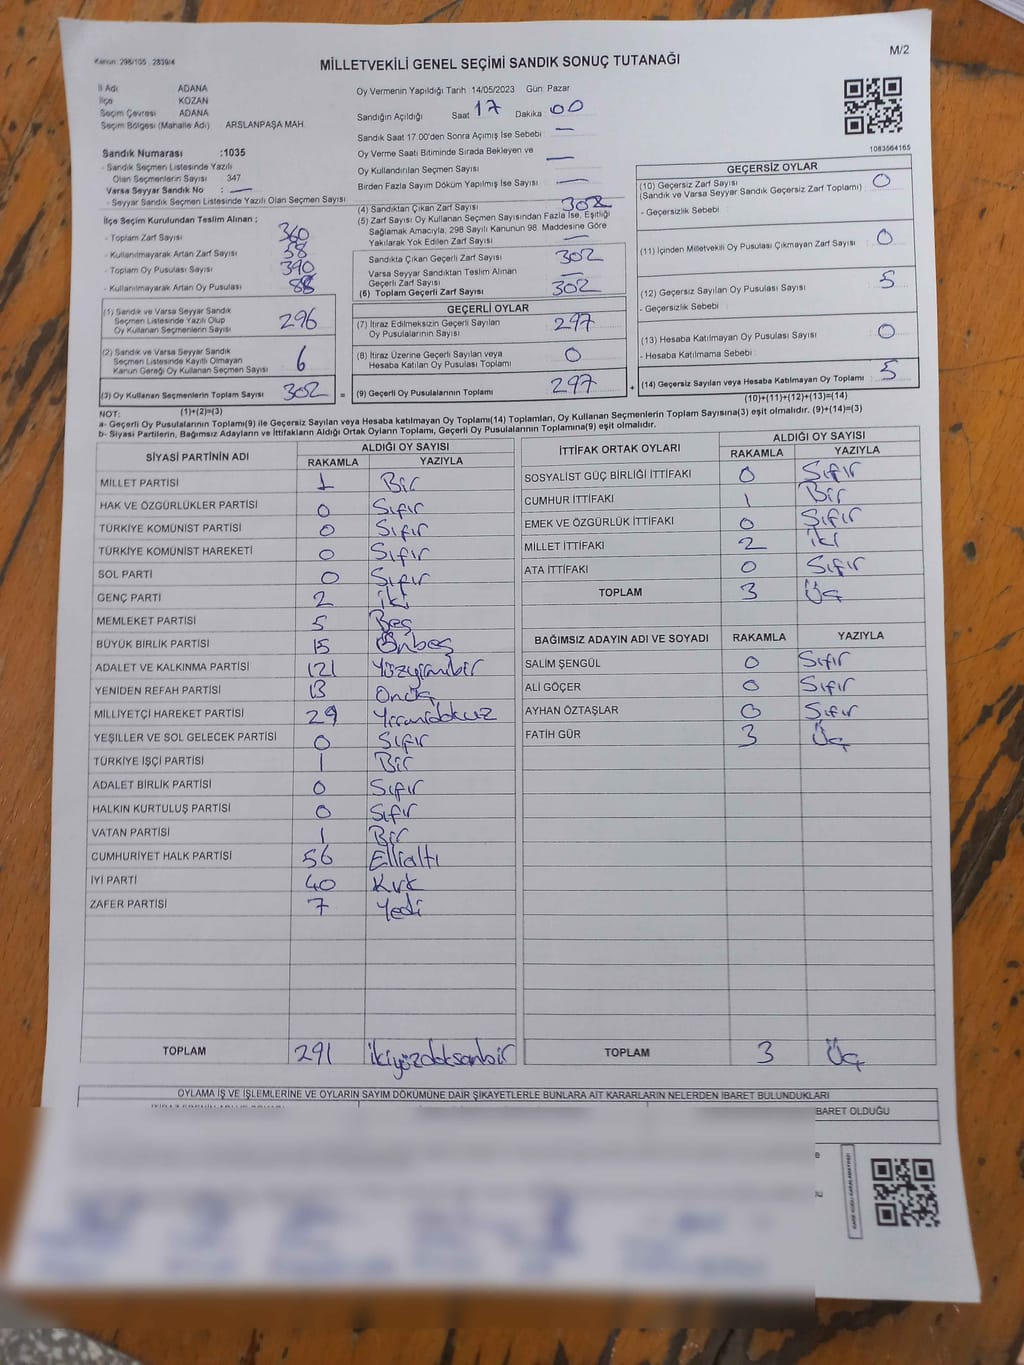 Kanun: 298/105 , 2839/4
M/2
MİLLETVEKİLİ GENEL SEÇİMİ SANDIK SONUÇ TUTANAĞI
İl Adı ADANA
İlçe KOZAN
Seçim Çevresi ADANA
Seçim Bölgesi (Mahalle Adı) ARSLANPAŞA MAH.
Oy Vermenin Yapıldığı Tarih 14/05/2023 Gün: Pazar
Sandığın Açıldığı Saat 17 Dakika 00
Sandık Saat 17.00'den Sonra Açılmış İse Sebebi : —
Oy Verme Saati Bitiminde Sırada Bekleyen ve
Oy Kullandırılan Seçmen Sayısı —
Birden Fazla Sayım Döküm Yapılmış İse Sayısı —
1083564165
Sandık Numarası :1035
- Sandık Seçmen Listesinde Yazılı
Olan Seçmenlerin Sayısı 347
Varsa Seyyar Sandık No : —
- Seyyar Sandık Seçmen Listesinde Yazılı Olan Seçmen Sayısı
İlçe Seçim Kurulundan Teslim Alınan :
- Toplam Zarf Sayısı 360
- Kullanılmayarak Artan Zarf Sayısı 58
- Toplam Oy Pusulası Sayısı 390
- Kullanılmayarak Artan Oy Pusulası 88
(1) Sandık ve Varsa Seyyar Sandık
Seçmen Listesinde Yazılı Olup
Oy Kullanan Seçmenlerin Sayısı 296
(2) Sandık ve Varsa Seyyar Sandık
Seçmen Listesinde Kayıtlı Olmayan
Kanun Gereği Oy Kullanan Seçmen Sayısı 6
(3) Oy Kullanan Seçmenlerin Toplam Sayısı 302 =
(1)+(2)=(3)
(4) Sandıktan Çıkan Zarf Sayısı 302
(5) Zarf Sayısı Oy Kullanan Seçmen Sayısından Fazla İse, Eşitliği
Sağlamak Amacıyla, 298 Sayılı Kanunun 98. Maddesine Göre
Yakılarak Yok Edilen Zarf Sayısı —
Sandıkta Çıkan Geçerli Zarf Sayısı 302
Varsa Seyyar Sandıktan Teslim Alınan
Geçerli Zarf Sayısı —
(6) Toplam Geçerli Zarf Sayısı 302
GEÇERLİ OYLAR
(7) İtiraz Edilmeksizin Geçerli Sayılan
Oy Pusulalarının Sayısı 297
(8) İtiraz Üzerine Geçerli Sayılan veya
Hesaba Katılan Oy Pusulası Toplamı 0
(9) Geçerli Oy Pusulalarının Toplamı 297 +
GEÇERSİZ OYLAR
(10) Geçersiz Zarf Sayısı 0
(Sandık ve Varsa Seyyar Sandık Geçersiz Zarf Toplamı)
- Geçersizlik Sebebi
(11) İçinden Milletvekili Oy Pusulası Çıkmayan Zarf Sayısı 0
(12) Geçersiz Sayılan Oy Pusulası Sayısı 5
- Geçersizlik Sebebi
(13) Hesaba Katılmayan Oy Pusulası Sayısı 0
- Hesaba Katılmama Sebebi
(14) Geçersiz Sayılan veya Hesaba Katılmayan Oy Toplamı 5
(10)+(11)+(12)+(13)=(14)
NOT:
a- Geçerli Oy Pusulalarının Toplamı(9) ile Geçersiz Sayılan veya Hesaba katılmayan Oy Toplamı(14) Toplamları, Oy Kullanan Seçmenlerin Toplam Sayısına(3) eşit olmalıdır. (9)+(14)=(3)
b- Siyasi Partilerin, Bağımsız Adayların ve İttifakların Aldığı Ortak Oyların Toplamı, Geçerli Oy Pusulalarının Toplamına(9) eşit olmalıdır.
SİYASİ PARTİNİN ADI ALDIĞI OY SAYISI
RAKAMLA YAZIYLA
MİLLET PARTİSİ 1 Bir
HAK VE ÖZGÜRLÜKLER PARTİSİ 0 Sıfır
TÜRKİYE KOMÜNİST PARTİSİ 0 Sıfır
TÜRKİYE KOMÜNİST HAREKETİ 0 Sıfır
SOL PARTİ 0 Sıfır
GENÇ PARTİ 2 iki
MEMLEKET PARTİSİ 5 Beş
BÜYÜK BİRLİK PARTİSİ 15 Onbeş
ADALET VE KALKINMA PARTİSİ 121 Yüzyirmibir
YENİDEN REFAH PARTİSİ 13 Onüç
MİLLİYETÇİ HAREKET PARTİSİ 29 Yirmidokuz
YEŞİLLER VE SOL GELECEK PARTİSİ 0 Sıfır
TÜRKİYE İŞÇİ PARTİSİ 1 Bir
ADALET BİRLİK PARTİSİ 0 Sıfır
HALKIN KURTULUŞ PARTİSİ 0 Sıfır
VATAN PARTİSİ 1 Bir
CUMHURİYET HALK PARTİSİ 56 Ellialtı
İYİ PARTİ 40 Kırk
ZAFER PARTİSİ 7 Yedi
TOPLAM 291 ikiyüzdoksanbir
İTTİFAK ORTAK OYLARI ALDIĞI OY SAYISI
RAKAMLA YAZIYLA
SOSYALİST GÜÇ BİRLİĞİ İTTİFAKI 0 Sıfır
CUMHUR İTTİFAKI 1 Bir
EMEK VE ÖZGÜRLÜK İTTİFAKI 0 Sıfır
MİLLET İTTİFAKI 2 iki
ATA İTTİFAKI 0 Sıfır
TOPLAM 3 Üç
BAĞIMSIZ ADAYIN ADI VE SOYADI RAKAMLA YAZIYLA
SALİM ŞENGÜL 0 Sıfır
ALİ GÖÇER 0 Sıfır
AYHAN ÖZTAŞLAR 0 Sıfır
FATİH GÜR 3 Üç
TOPLAM 3 Üç
OYLAMA İŞ VE İŞLEMLERİNE VE OYLARIN SAYIM DÖKÜMÜNE DAİR ŞİKAYETLERLE BUNLARA AİT KARARLARIN NELERDEN İBARET BULUNDUKLARI
BARET OLDUĞU